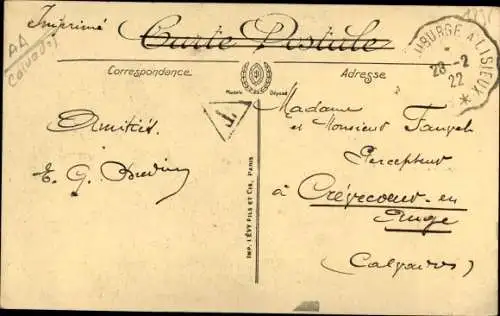 Imprimé
Carte Postale
Correspondance
Adresse
Modèle Déposé
UBURGE A LISIEUX
28 -2
22
T
AA
Calvados
Amitiés
E. G.
Madame
et Monsieur
Percepteur
à Crévecoeur-en
Auge
(Calvados)
IMP. LÉVY FILS ET CIE, PARIS